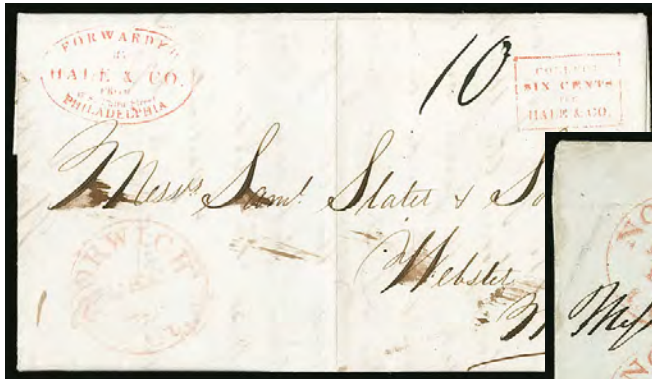 FORWARDED
BY
HALE & CO.
FROM
PHILADELPHIA
10
COLLECT
SIX CENTS
FOR
HALE & CO.
Messrs Saml Slater & So
Webster
M
NORWICH
NO
Mess
NO